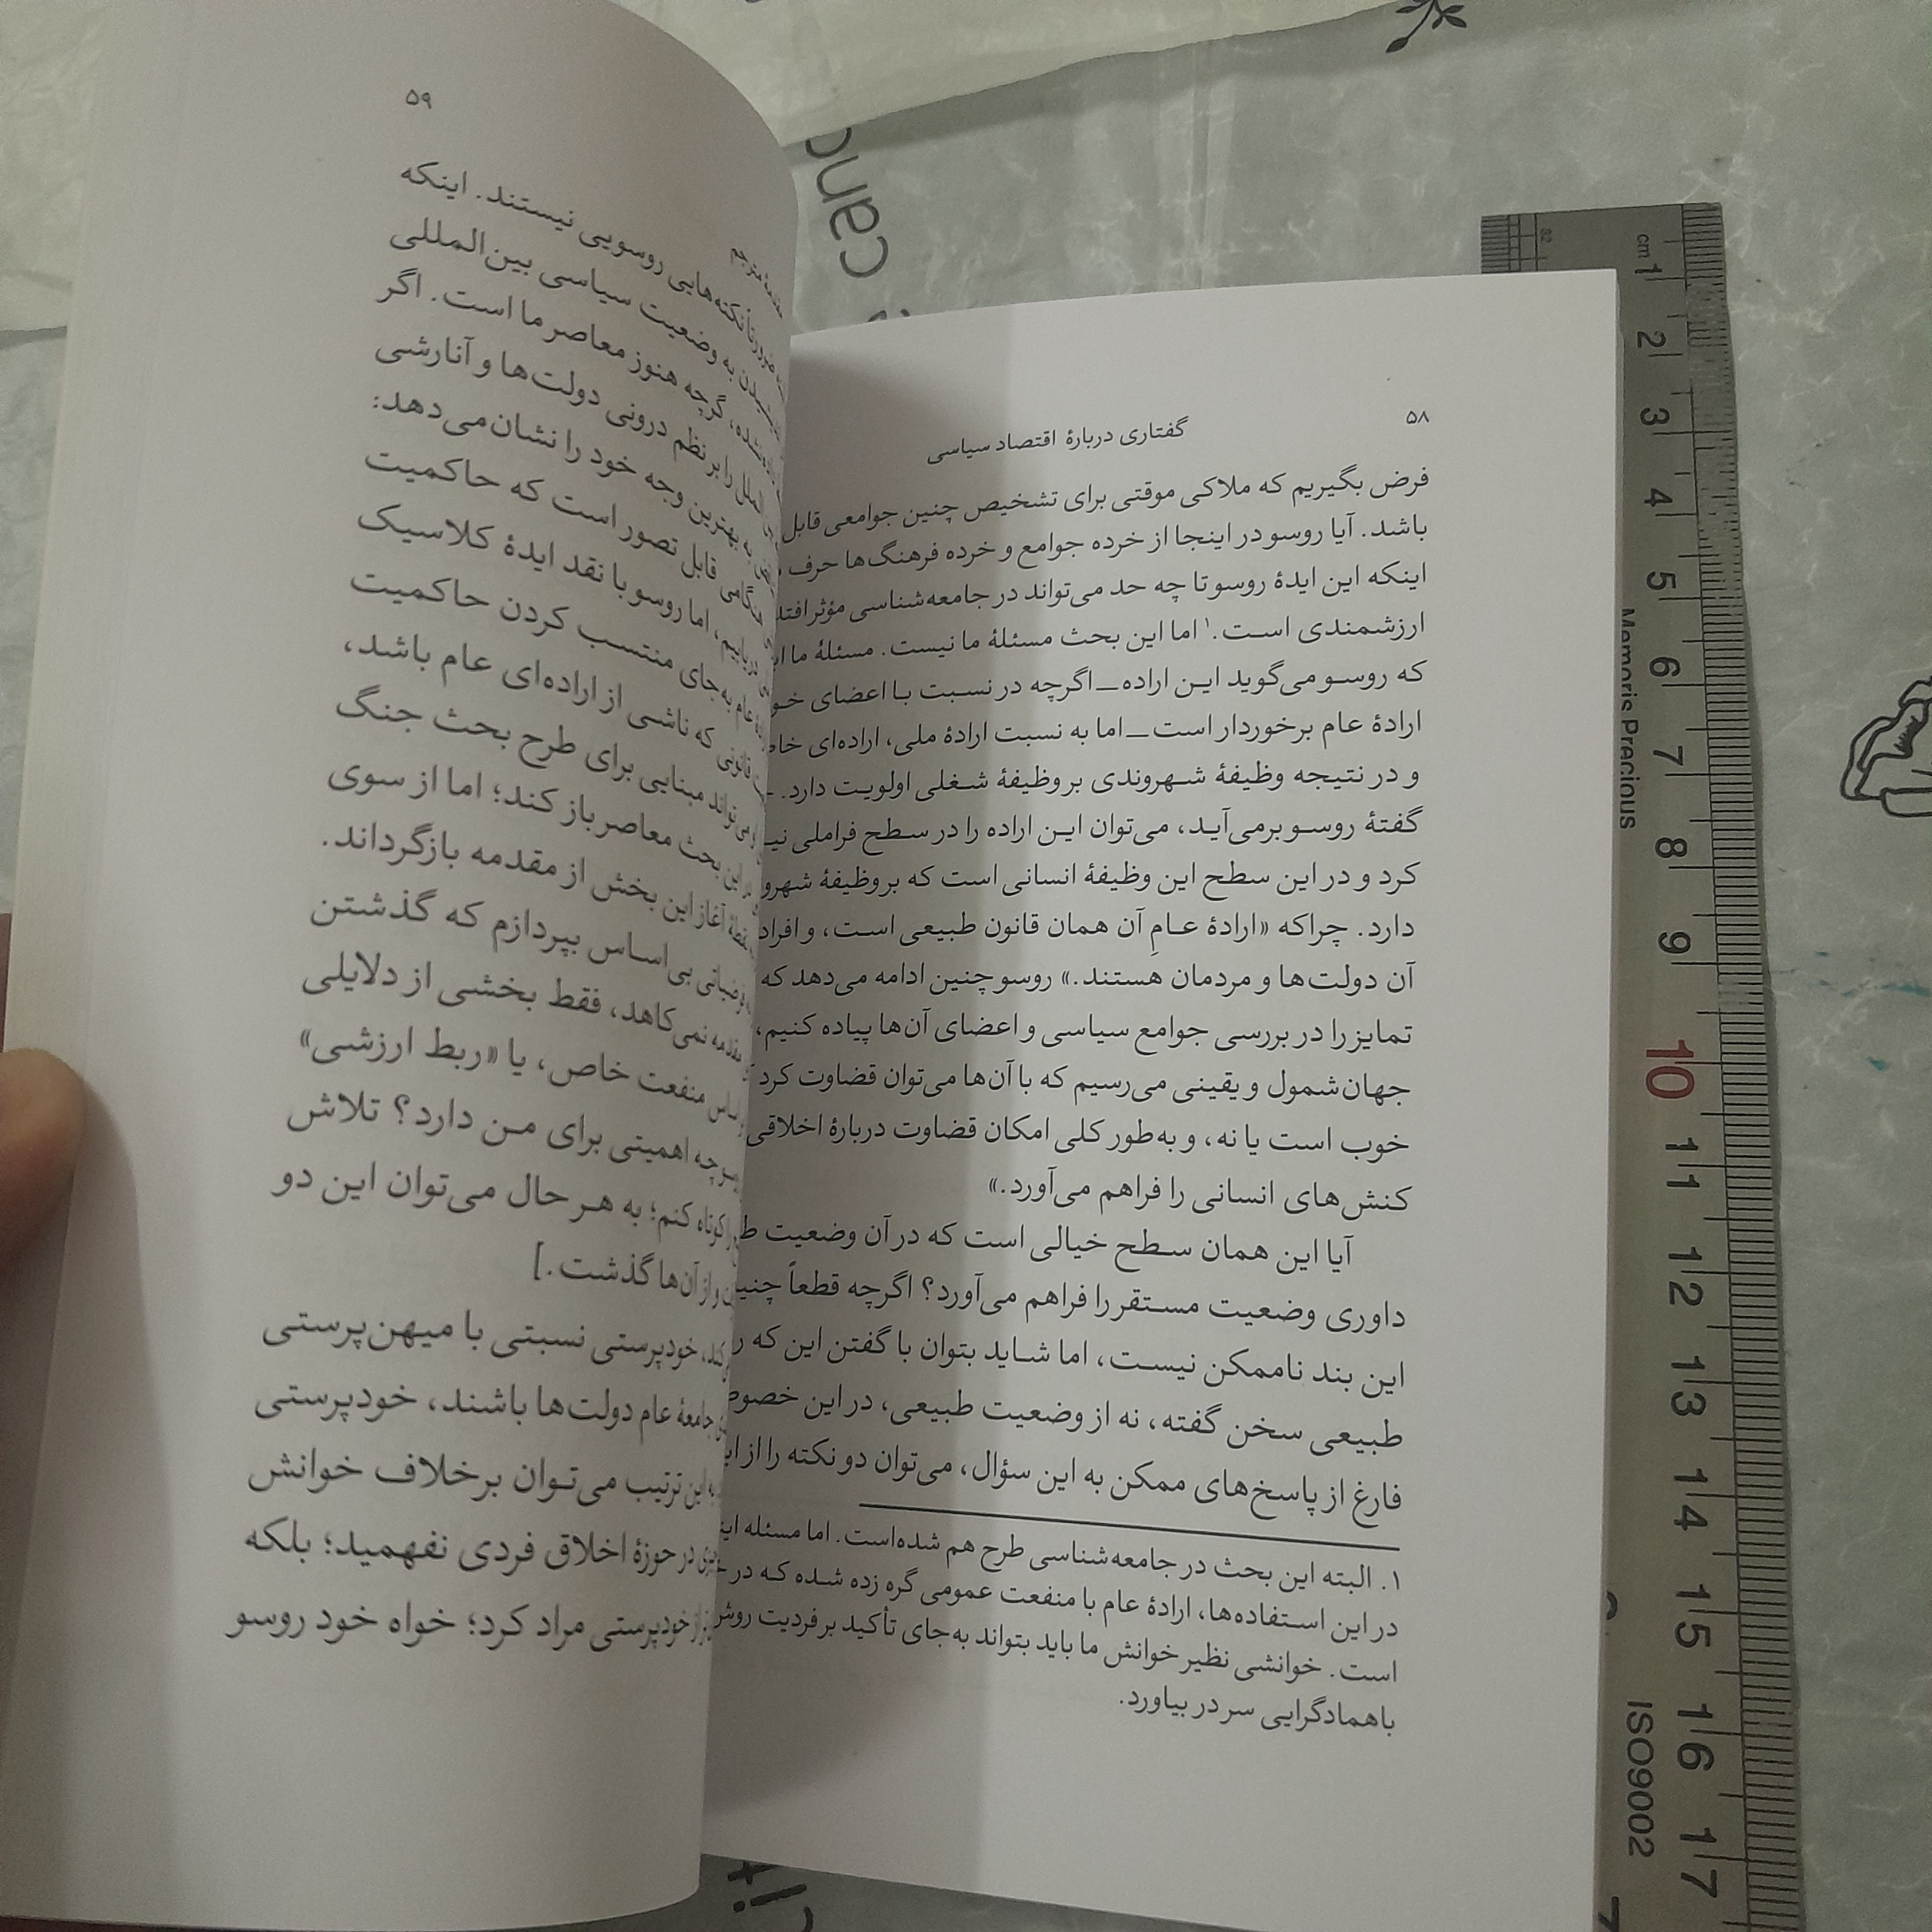 ۵۸
گفتاری دربارهٔ اقتصاد سیاسی
فرض بگیریم که ملاکی موقتی برای تشخیص چنین جوامعی قابل
باشد. آیا روسو در اینجا از خرده جوامع و خرده فرهنگ‌ها حرف
اینکه این ایدهٔ روسو تا چه حد می‌تواند در جامعه‌شناسی مؤثر افتد
ارزشمندی است.۱ اما این بحث مسئلهٔ ما نیست. مسئلهٔ ما
که روسو می‌گوید این اراده—اگرچه در نسبت با اعضای
ارادهٔ عام برخوردار است—اما به نسبت ارادهٔ ملی، اراده‌ای
و در نتیجه وظیفهٔ شهروندی بر وظیفهٔ شغلی اولویت دارد.
گفتهٔ روسو برمی‌آید، می‌توان این اراده را در سطح فراملی
کرد و در این سطح این وظیفهٔ انسانی است که بر وظیفهٔ
دارد. چراکه «ارادهٔ عامِ آن همان قانون طبیعی است، و افراد
آن دولت‌ها و مردمان هستند.» روسو چنین ادامه می‌دهد که
تمایز را در بررسی جوامع سیاسی و اعضای آن‌ها پیاده کنیم،
جهان‌شمول و یقینی می‌رسیم که با آن‌ها می‌توان قضاوت کرد
خوب است یا نه، و به‌طور کلی امکان قضاوت دربارهٔ اخلاقی
کنش‌های انسانی را فراهم می‌آورد.»
آیا این همان سطح خیالی است که در آن وضعیت
داوری وضعیت مستقر را فراهم می‌آورد؟ اگرچه قطعاً
این بند ناممکن نیست، اما شاید بتوان با گفتن این که
طبیعی سخن گفته، نه از وضعیت طبیعی، در این
فارغ از پاسخ‌های ممکن به این سؤال، می‌توان دو نکته را از
۱. البته این بحث در جامعه‌شناسی طرح هم شده‌است. اما مسئله
در این استفاده‌ها، ارادهٔ عام با منفعت عمومی گره زده شده که در
است. خوانشی نظیر خوانش ما باید بتواند به‌جای تأکید بر فردیت
باهمادگرایی سر در بیاورد.
۵۹
نکته‌هایی روسویی نیستند. اینکه
به وضعیت سیاسی بین‌المللی
گرچه هنوز معاصر ما است. اگر
را بر نظم درونی دولت‌ها و آنارشی
به بهترین وجه خود را نشان می‌دهد:
هنگامی قابل تصور است که حاکمیت
اما روسو با نقد ایدهٔ کلاسیک
عام به‌جای منتسب کردن حاکمیت
قانونی که ناشی از اراده‌ای عام باشد،
می‌تواند مبنایی برای طرح بحث جنگ
این بحث معاصر باز کند؛ اما از سوی
آغاز این بخش از مقدمه بازگرداند.
بی‌اساس بپردازم که گذشتن
مقدمه نمی‌کاهد، فقط بخشی از دلایلی
منفعت خاص، یا «ربط ارزشی»
چه اهمیتی برای من دارد؟ تلاش
کوتاه کنم؛ به هر حال می‌توان این دو
و از آن‌ها گذشت.]
خودپرستی نسبتی با میهن‌پرستی
جامعهٔ عام دولت‌ها باشند، خودپرستی
این ترتیب می‌توان برخلاف خوانش
در حوزهٔ اخلاق فردی نفهمید؛ بلکه
از خودپرستی مراد کرد؛ خواه خود روسو
cm
1
2
3
4
5
6
7
8
9
10
11
12
13
14
15
16
17
Memoris Precious
ISO9002